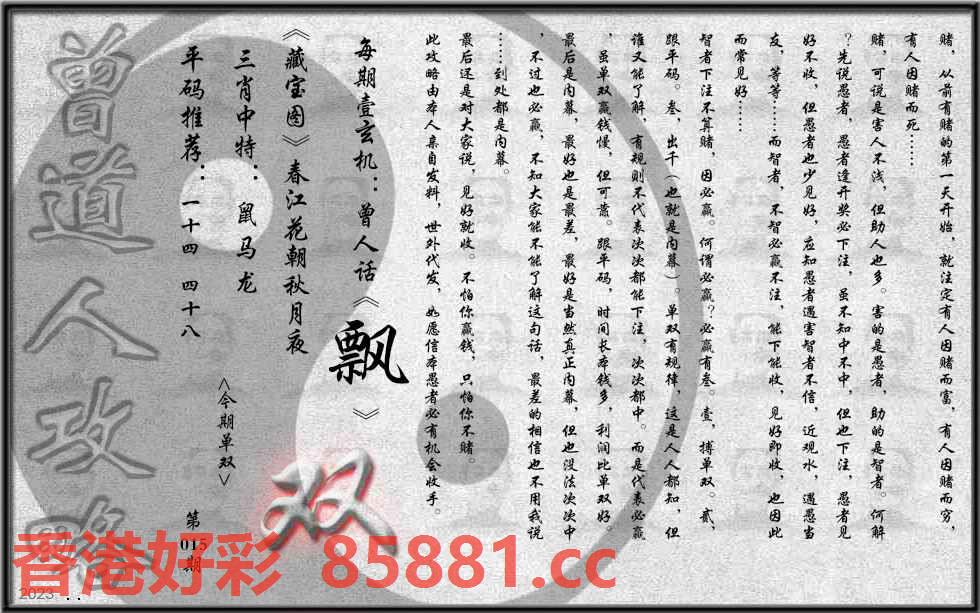 赌，从前有赌的第一天开始，就注定有人因赌而富，有人因赌而穷，
有人因赌而死……
赌，可说是害人不浅，但助人也多。害的是愚者，助的是智者。何解
？先说愚者，愚者逢开奖必下注，虽不知中不中，但也下注，愚者见
好不收，但愚者也少见好，应知愚者遇害智者不信，近观水，遇愚当
友，等等……而智者，不智必赢不注，能下能收，见好即收，也因此
而常见好……
智者下注不算赌，因必赢。何谓必赢？必赢有叁。壹，搏单双。贰，
跟平码。叁，出千（也就是内幕）。单双有规律，这是人人都知，但
谁又能了解，有规则不代表次次都能下注，次次都中。而是代表必赢
，虽单双赢钱慢，但可蓄。跟平码，时间长本钱多，利润比单双好。
最后是内幕，最好也是最差，最好是当然真正内幕，但也没法次次中
，不过也必赢，不知大家能不能了解这句话，最差的相信也不用我说
……到处都是内幕。
最后还是对大家说，见好就收。不怕你赢钱，只怕你不赌。
此攻略由本人亲自发料，世外代发，如愿信本愚者必有机会收手。
每期壹玄机：曾人话《飘》
《藏宝图》春江花朝秋月夜
三肖中特：鼠马龙
平码推荐：一十四 四十八
<今期单双>
双
第015期
曾道人攻略
香港好彩 85881.cc
2023